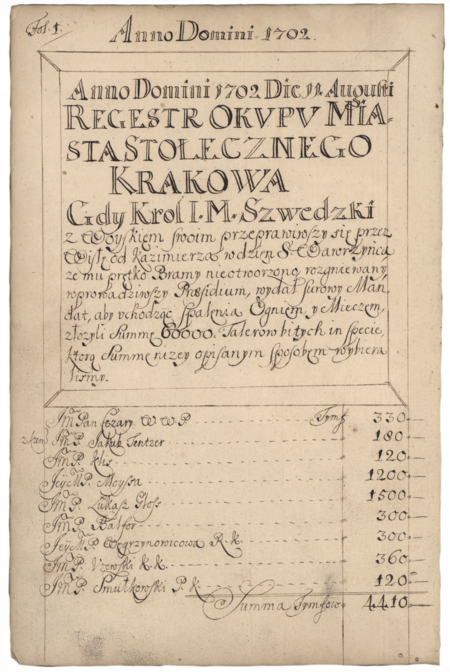 Fol. 1.
Anno Domini 1702.
Anno Domini 1702 Die 11 Augusti
REGESTR OKVPV MIA-
STA STOŁECZNEGO
KRAKOWA
Gdy Krol I. M. Szwedzki
z Woyskiem swoim przeprawiwszy się przez
Wisłę od Kazimierza w dzień S. Wawrzyńca
że mu prętko Bramy nieotworzono, rozgniewany
wprowadziwszy Præsidium, wydał surowy Man-
dat, aby uchodząc spalenia Ogniem y Mieczem,
złożyli Summę 60000. Talerow bitych in specie,
ktorą Summę nizey opisanym sposobem wybiera-
lismy.
Jm Pan Cezary W. W. P. Tymf 330
Jm P. Jakub Tentzer 180
Jm P. 120
JeyM P. Moyssa 1200
Jm P. Łukasz Gloss 1500
Jm P. 300
JeyM P. Węgrzynowicowa R. k. 300
Jm P. k. k. 360
Jm P. Smułkowski P. k. 120
Summa Tymfow 4410